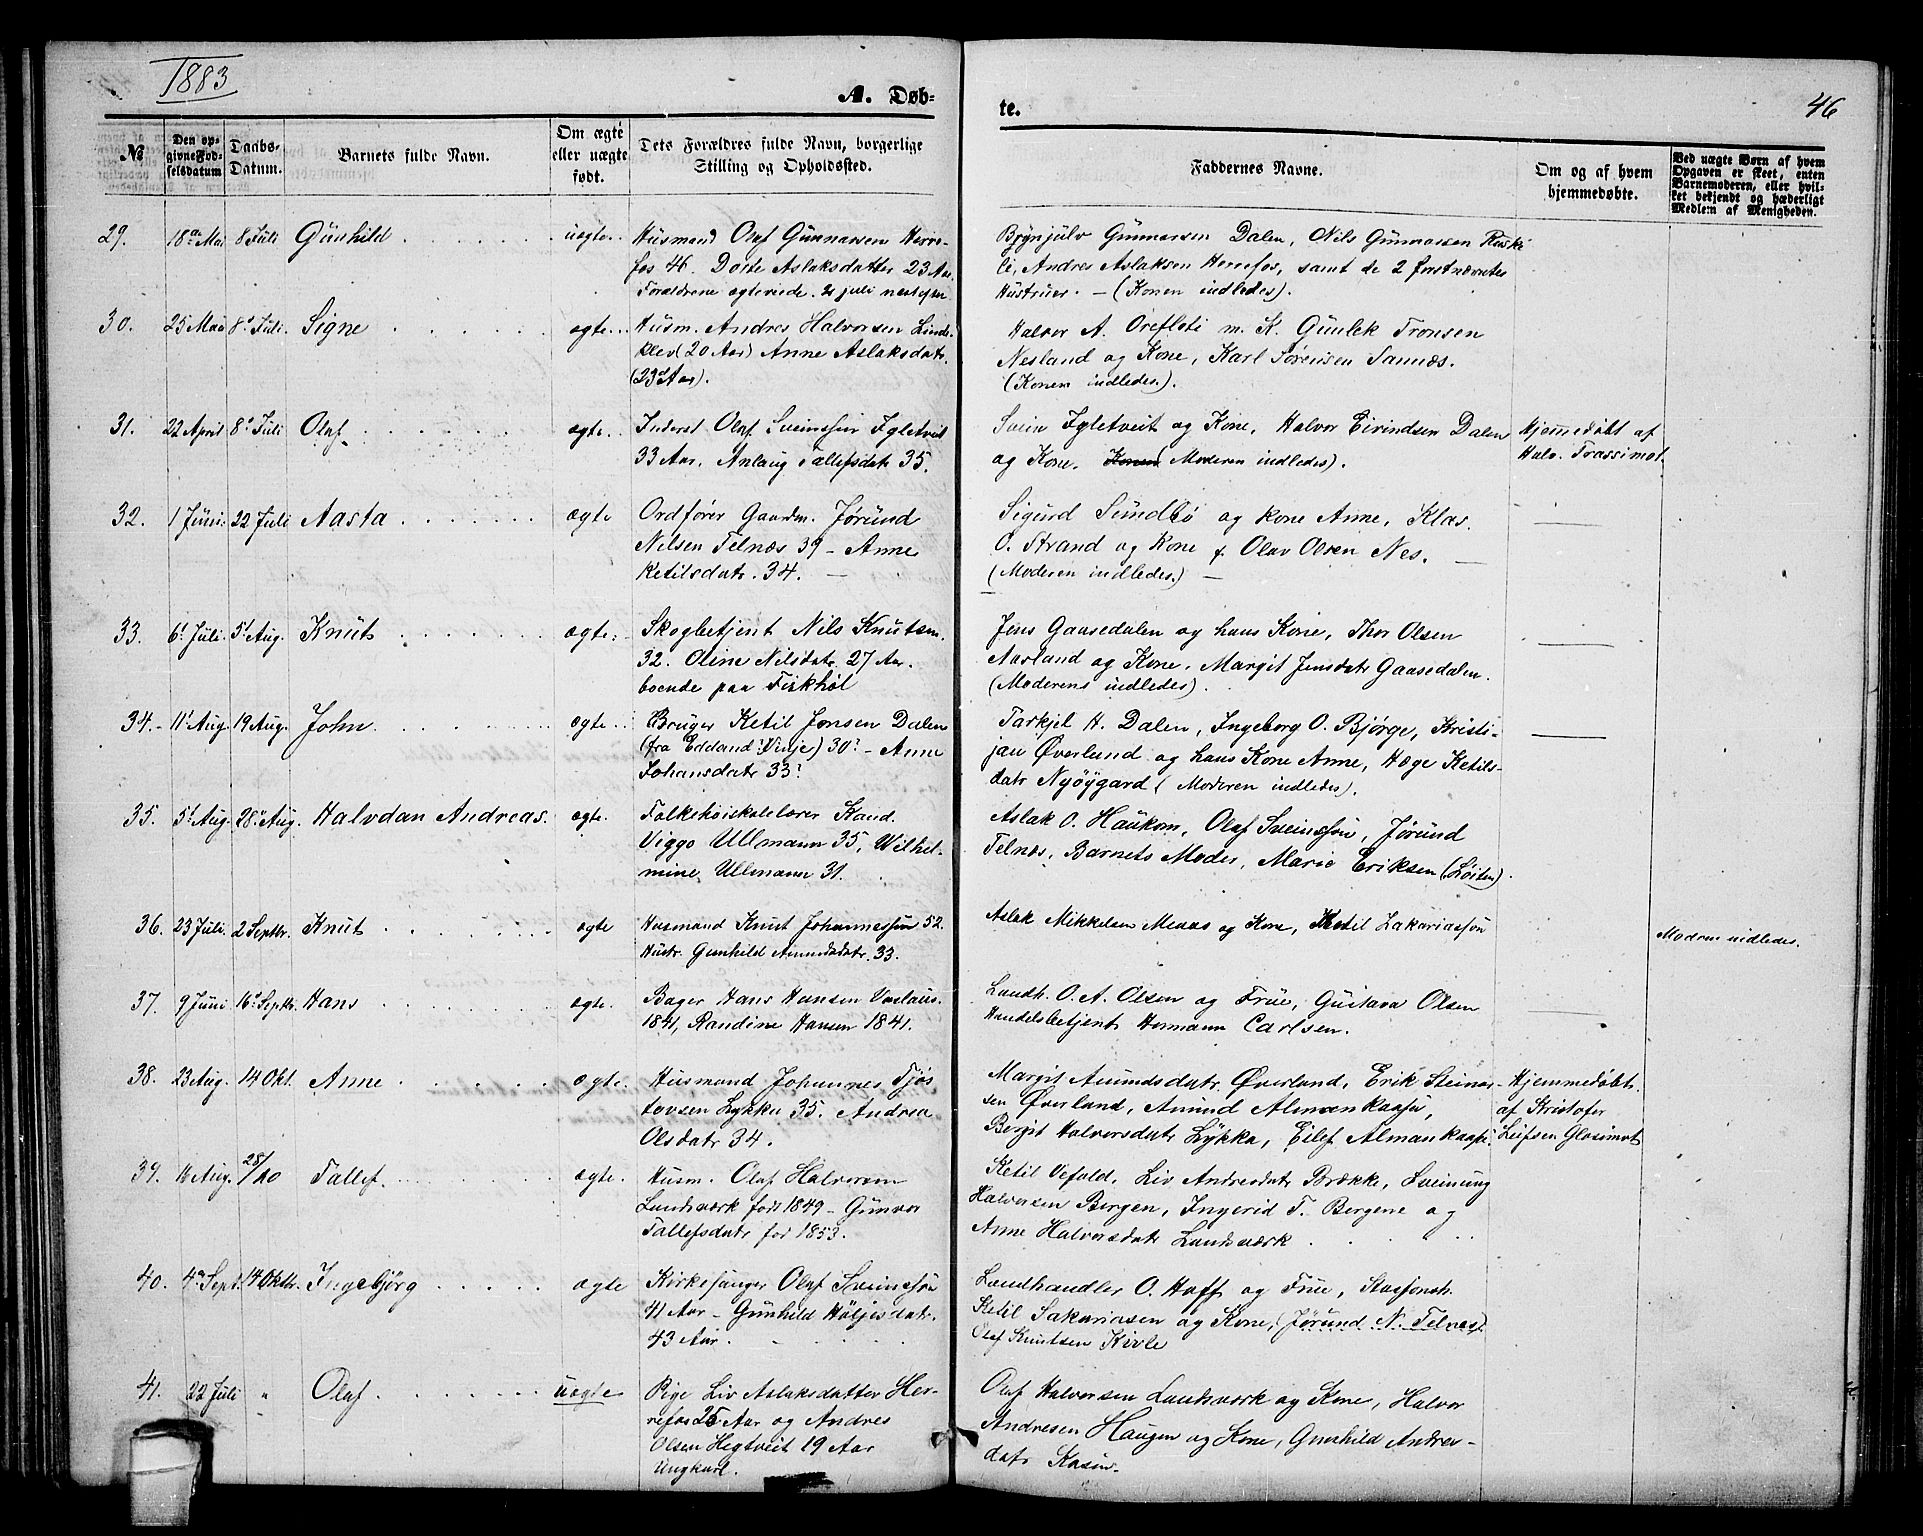 1883
A. Døb-
te.
46
№
Den op-
givne Fød-
selsdatum
Daabs-
Datum.
Barnets fulde Navn.
Om ægte
eller uægte
født.
Dets Forældres fulde Navn, borgerlige
Stilling og Opholdssted.
Faddernes Navne.
Om og af hvem
hjemmedøbte.
Ved uægte Børn af hvem
Opgaven er skeet, enten
Barnemoderen, eller hvil-
ket bekjendt og hæderligt
Medlem af Menigheden.
29. 18de Mai 8 Juli Gunhild uægte. Husmand Olaf Gunnarsen Herre-
fos 46. Dorte Aslaksdatter 23 Aar.
Forældrene ægteviede juli
Brynjulv Gunnarsen Dalen, Nils Gunnarsen
Andres Aslaksen Herrefos, samt de 2 førstnævntes
Hustruer. - (Konen indledes).
30. 25 Mai 8de Juli. Signe ægte. Husm. Andres Halvorsen Linde-
klev (20 Aar) Anne Aslaksdatr.
(23 Aar).
Halvor A. Orefleti m. K. Gunlek Tronsen
Nesland og Kone, Karl Sørensen Sannæs.
(Konen indledes.).
31. 22 April 8de Juli Olaf ægte. Inderst Olaf Sveinsson Igletveit
33 Aar. Anlaug Tallefsdatr 35.
Svein Igletveit og Kone, Halvor Eivindsen Dalen
og Kone. Konen Moderen indledes).
Hjemmedøbt af
Halv. Trossimot.
32. 1 Juni. 22 Juli Aasta ægte Ordfører Gaardm. Jørund
Nilsen Telnæs 39 - Anne
Ketilsdatr. 34. -
Sigurd Sundbø og kone Anne, Klas
O. Strand og Kone & Olav Olsen Nes. -
(Moderen indledes.) -
33. 6t Juli. 5t Aug. Knut ægte. Skogbetjent Nils Knutsen.
32. Oline Nilsdatr. 27 Aar.
boende paa Fiskhøl
Jens Gaasedalen og hans Kone, Thor Olsen
Aarland og Kone, Margit Jensdatr Gaasedalen.
(Moderens indledes).
34. 11t Aug. 19 Aug. John ægte Bruger Ketil Jonsen Dalen
(fra Edland, Vinje) 30? - Anne
Johansdatr 33?
Tarkjel H. Dalen, Ingeborg O. Bjørge, Kristi-
jan Øverland og hans Kone Anne, Hæge Ketils-
datr Nyøygard (Moderen indledes).
35. 5t Aug. 28de Aug. Halvdan Andreas. ægte. Folkehøiskolelærer Kand.
Viggo Ullmann 35, Wilhel-
mine Ullmann 31.
Aslak O. Haukom, Olaf Sveinsson, Jørund
Telnæs, Barnets Moder, Marie Eriksen (Løiten).
36. 23 Juli. 2 Septbr. Knut ægte Husmand Knut Johannesson 52.
Hustr. Gunhild Amundsdatr. 33.
Aslak Mikkelsen Meaas og Kone, Ketil Zakariasson
Moderen indledes.
37. 9 Juni 16de Septbr. Hans ægte. Bager Hans Hansen
1841, Randine Hansen 1841.
Landh. O. A. Olsen og Frue, Gustava Olsen
Handelsbetjent Hermann Carlsen.
38. 23 Aug. 14 Okt. Anne ægte. Husmand Johannes Tjøs
tovsen Lykka 35. Andrea
Olsdatr 34.
Margit Amundsdatr Øverland, Erik Steinar-
sen Øverland, Amund Almankaasa,
Bergit Halvorsdatr Lykka, Eilef Almankaasa.
Hjemmedøbt.
af Kristofer
Leifsen Glosimot
39. 16 Aug. 28/10 Tallef. ægte. Husm. Olaf Halvorsen
Landsværk født 1849 - Gunvor
Tallefsdatr fød 1853.
Ketil Vefald, Liv Andresdatr Brække, Sveinung
Halvorsen Bergen, Ingerid T. Bergene og
Anne Halvorsdatr Landsværk
40. 4de Sept. 14 Oktbr. Ingebjørg ægte Kirkesanger Olaf Sveinsson
41 Aar - Gunhild Høljesdatr.
43 Aar.
Landhandler O. Hoff og Frue,
Ketil Sakariasen og Kone, (Jørund N. Telnæs)
Olaf Knutsen Kivle
41. 22 Juli " Olaf. uægte Pige Liv Aslaksdatter Her-
refos 25 Aar og Andres
Olsen Hegtveit 19 Aar
Ungkarl.
Olaf Halvorsen Landsværk og Kone, Halvor
Andresen Haugen og Kone, Gunhild Andres-
datr